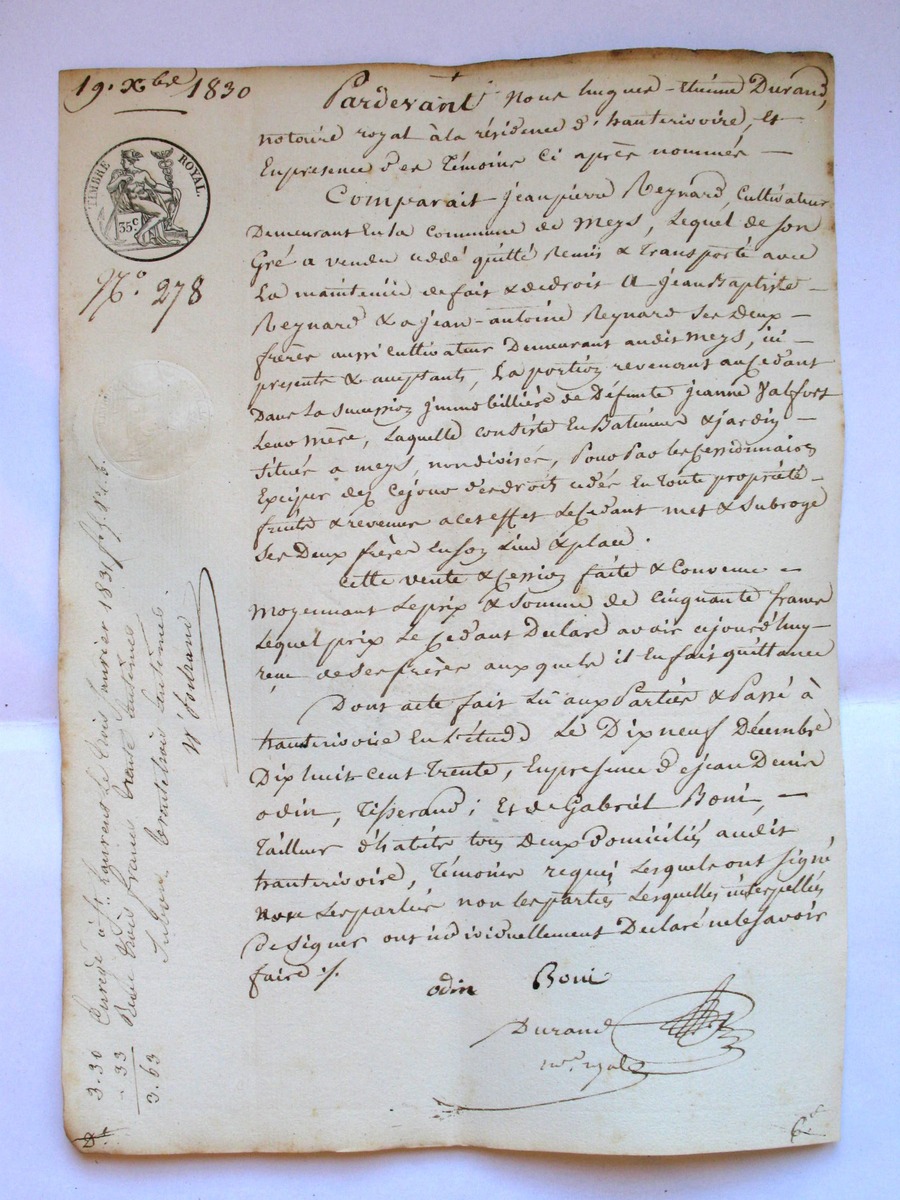 19. Xbre 1830
TIMBRE ROYAL.
35c
No. 278
Pardevant Nous hugues - Etienne Durand,
notaire royal à la résidence d'hauterivoire, Et
En presence des Témoins Ci après nommés —
Comparait jean pierre Reynard, Cultivateur
Demeurant En la Commune de Meys, Lequel de son
Gré a vendu cédé quitté Remis & Transporté avec
La maintenue de fait & de droit A jean Baptiste —
Reynard & a jean-antoine Reynard ses deux —
frères aussi Cultivateurs Demeurant audit Meys, ici —
presents & acceptants, La portion revenant au Cedant
Dans La succession jmmobilliére de Défunte jeanne
Leur Mère, Laquelle Consiste En Batiments & jardin —
Situés a meys, non divisés, Pour Par les Cessionnaires
Exciper dez Cejour des droits cédés En toute propriété —
fruits & revenus a cet effet Le Cedant met & Subroge
Ses Deux frères En son Lieu & place.
Cette vente & Cession faite & Convenue —
Moyennant Le prix & Somme de Cinquante francs
Lequel prix Le Cedant Déclare avoir cejourd'huy —
reçu de Ses frères aux quels il En fait quittance
Dont acte fait Lû aux Parties & Passé à
hauterivoire En L'étude Le Dix neuf Décembre
Dix huit Cent Trente, En presence de jean Denis
odin, Tisserand; Et de Gabriel Boni, —
Tailleur d'habits tous Deux Domiciliés audit
hauterivoire, Témoins requis Lesquels ont signé
non les parties Lesquelles interpellées
De signer ont individuellement Déclaré ne le savoir
faire ./.
odin Boni
Durand
nre. royal
Enregé à St. Laurent Le trois janvier 1831
Reçu trois francs trente Centimes
Subvon. trente trois Centimes.
3.30
- 33
3.63